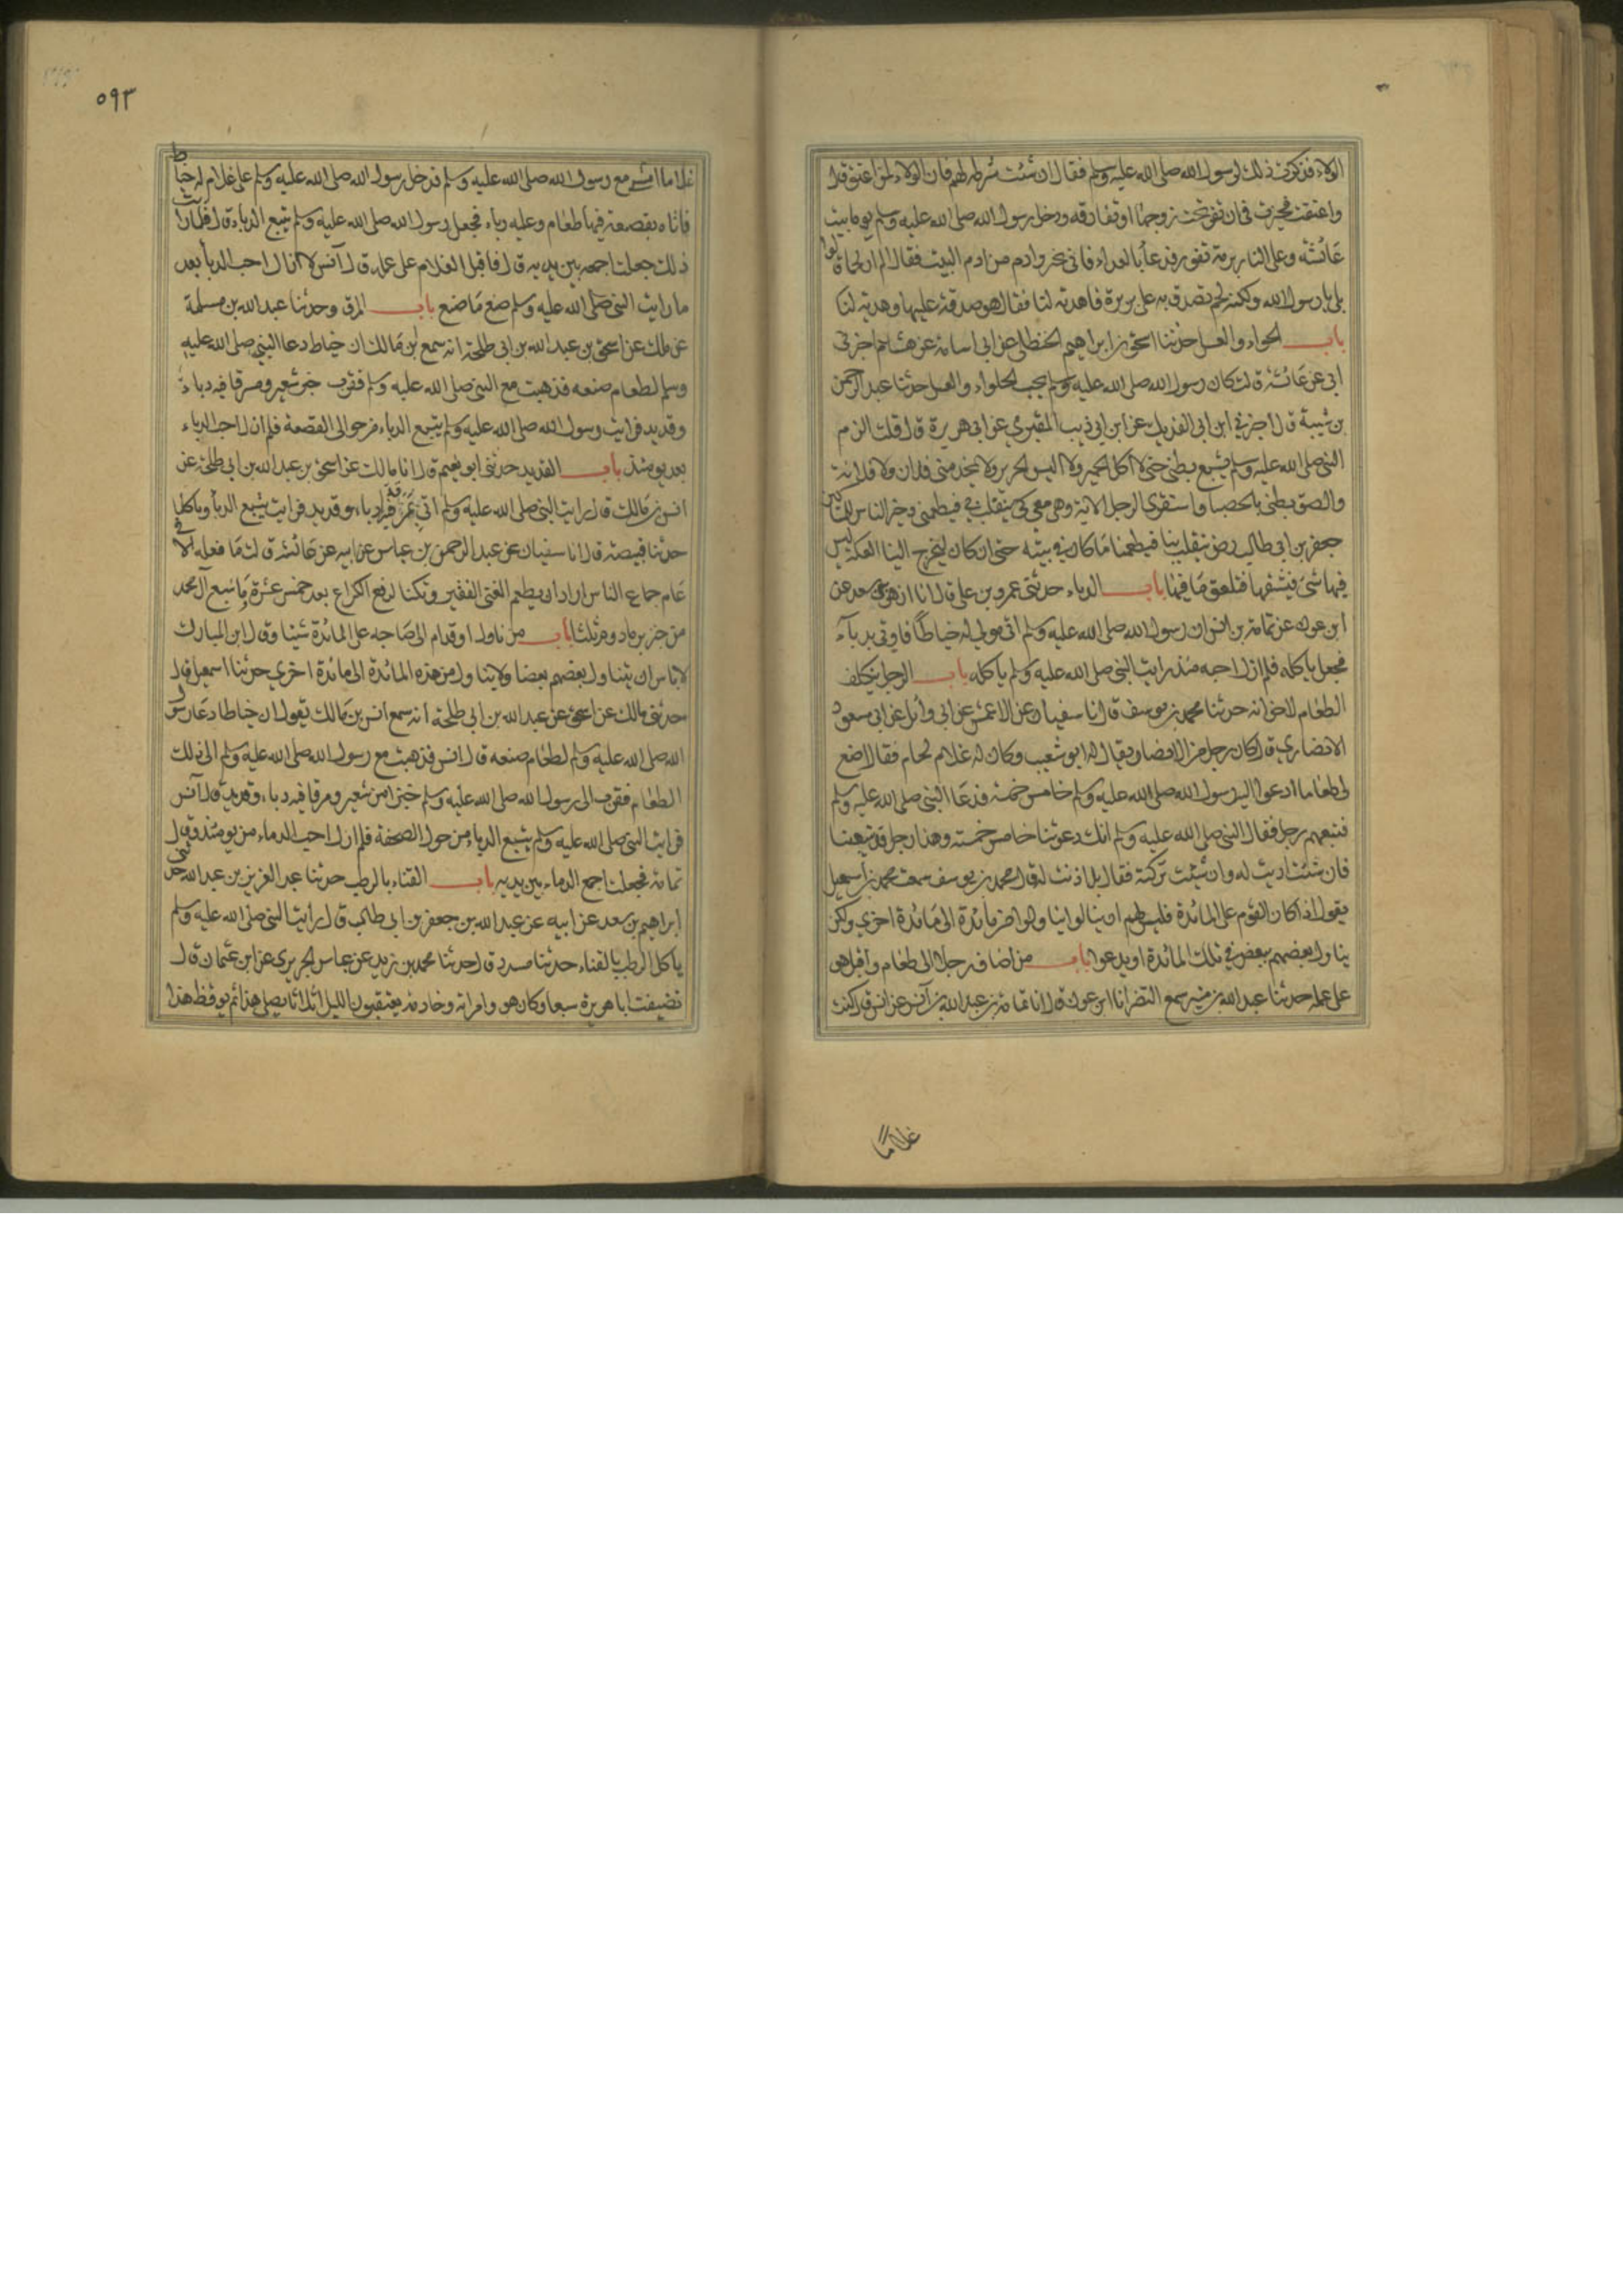 الولاء فذكرت ذلك لرسول الله صلى الله عليه وسلم فقال ان شئت شرطه لهم فان الولاء لمن اعتق قال
واعتقت فخيرت في ان تقر تحت زوجها او تفارقه ودخل رسول الله صلى الله عليه وسلم يوما بيت
عائشة وعلى النار برمة تفور فدعا بالغداء فاتى بخبز وادم من ادم البيت فقال الم ار لحما قالوا
بلى يا رسول الله ولكنه لحم تصدق به على بريرة فاهدته لنا فقال هو صدقة عليها وهدية لنا
باب الحلواء والعسل حدثنا اسحق بن ابراهيم الحنظلي عن ابي اسامة عن هشام اخبرني
ابي عن عائشة قالت كان رسول الله صلى الله عليه وسلم يحب الحلواء والعسل حدثنا عبد الرحمن
بن شيبة قال اخبرني ابن ابي الفديك عن ابن ابي ذيب المقبري عن ابي هريرة قال قلت الزم
النبي صلى الله عليه وسلم بشبع بطني حتى لا اكل الخمير ولا البس الحرير ولا يخدمني فلان ولا فلانة
والصق بطني بالحصبا واستقرى الرجل الاية وهي معي كي ينقلب بي فيطعمني وخير الناس للمساكين
جعفر بن ابي طالب رض ينقلب بنا فيطعمنا ما كان في بيته حتى ان كان ليخرج الينا العكة ليس
فيها شئ فنشقها فنلعق ما فيها باب الدباء حدثني عمرو بن علي قال انا ازهر بن سعد عن
ابن عون عن ثمامة بن انس ان رسول الله صلى الله عليه وسلم اتى مولى له خياطا فاوتى بدباء
فجعل ياكله فلم ازل احبه منذ رايت النبي صلى الله عليه وسلم ياكله باب الرجل يتكلف
الطعام لاخوانه حدثنا محمد بن يوسف قال انا سفيان عن الاعمش عن ابي وائل عن ابي مسعود
الانصاري قال كان رجل من الانصار يقال له ابو شعيب وكان له غلام لحام فقال اصنع
لي طعاما ادعو اليه رسول الله صلى الله عليه وسلم خامس خمسة فدعا النبي صلى الله عليه وسلم
فتبعهم رجل فقال النبي صلى الله عليه وسلم انك دعوتنا خامس خمسة وهذا رجل قد تبعنا
فان شئت اذنت له وان شئت تركته فقال بل اذنت له قال محمد بن يوسف سمعت محمد بن اسمعيل
يقول اذا كان القوم على المائدة فليس لهم ان يناولوا من مائدة الى مائدة اخرى ولكن
يناول بعضهم بعض في تلك المائدة او يدعوا باب من اضاف رجلا الى طعام واقبل هو
على عمله حدثنا عبد الله بن منير سمع النضر انا ابن عون قال انا ثمامة بن عبد الله بن انس عن انس قال كنت
غلاما
٥٩٣
غلاما امشي مع رسول الله صلى الله عليه وسلم فدخل رسول الله صلى الله عليه وسلم على غلام له خياط
فاتاه بقصعة فيها طعام وعليه دباء فجعل رسول الله صلى الله عليه وسلم يتبع الدباء قال فلما رايت
ذلك جعلت اجمعه بين يديه قال فاقبل الغلام على عمله قال انس لا ازال احب الدبا بعد
ما رايت النبي صلى الله عليه وسلم صنع ما صنع باب المرق وحدثنا عبد الله بن مسلمة
عن ملك عن اسحق بن عبد الله بن ابي طلحة انه سمع انس بن مالك ان خياط دعا النبي صلى الله عليه
وسلم لطعام صنعه فذهبت مع النبي صلى الله عليه وسلم فقرب خبز شعير ومرقا فيه دباء
وقديد فرايت رسول الله صلى الله عليه وسلم يتبع الدباء من حوالي القصعة فلم ازل احب الدباء
بعد يومئذ باب القديد حدثني ابو نعيم قال انا مالك عن اسحق بن عبد الله بن ابي طلحة عن
انس بن مالك قال رايت النبي صلى الله عليه وسلم اتي بمرقة فيها دباء وقديد فرايت يتبع الدبا وياكلها
حدثنا قبيصة قال انا سفيان عن عبد الرحمن بن عباس عن ابيه عن عائشة قالت ما فعله الا في
عام جماع الناس اراد ان يطعم الغني الفقير وتكنا لرفع الكراع بعد خمس عشرة وما شبع آل محمد
من خبز بر مادوم ثلثا باب من ناول او قدم الى صاحبه على المائدة شيئا وقال ابن المبارك
لا باس ان يتناول بعضهم بعضا ولا يناول من هذه المائدة الى مائدة اخرى حدثنا اسمعيل قال
حدثني مالك عن اسحق عن عبد الله بن ابي طلحة انه سمع انس بن مالك يقول ان خياطا دعا رسول
الله صلى الله عليه وسلم لطعام صنعه قال انس فذهبت مع رسول الله صلى الله عليه وسلم الى ذلك
الطعام فقرب الى رسول الله صلى الله عليه وسلم خبزا من شعير ومرقا فيه دباء وقديد قال انس
فرايت النبي صلى الله عليه وسلم يتبع الدباء من حول الصحفة فلم ازل احب الدباء من يومئذ وقال
ثمامة فجعلت اجمع الدباء بين يديه باب القثاء بالرطب حدثنا عبد العزيز بن عبد الله حدثني
ابراهيم بن سعد عن ابيه عن عبد الله بن جعفر بن ابي طالب قال رايت النبي صلى الله عليه وسلم
ياكل الرطب بالقثاء حدثنا مسدد قال حدثنا محمد بن زيد عن عباس الجريري عن ابن عثمان قال
تضيفت ابا هريرة سبعا وكان هو وامراته وخادمه يعتقبون الليل اثلاثا يصلي هذا ثم يوقظ هذا